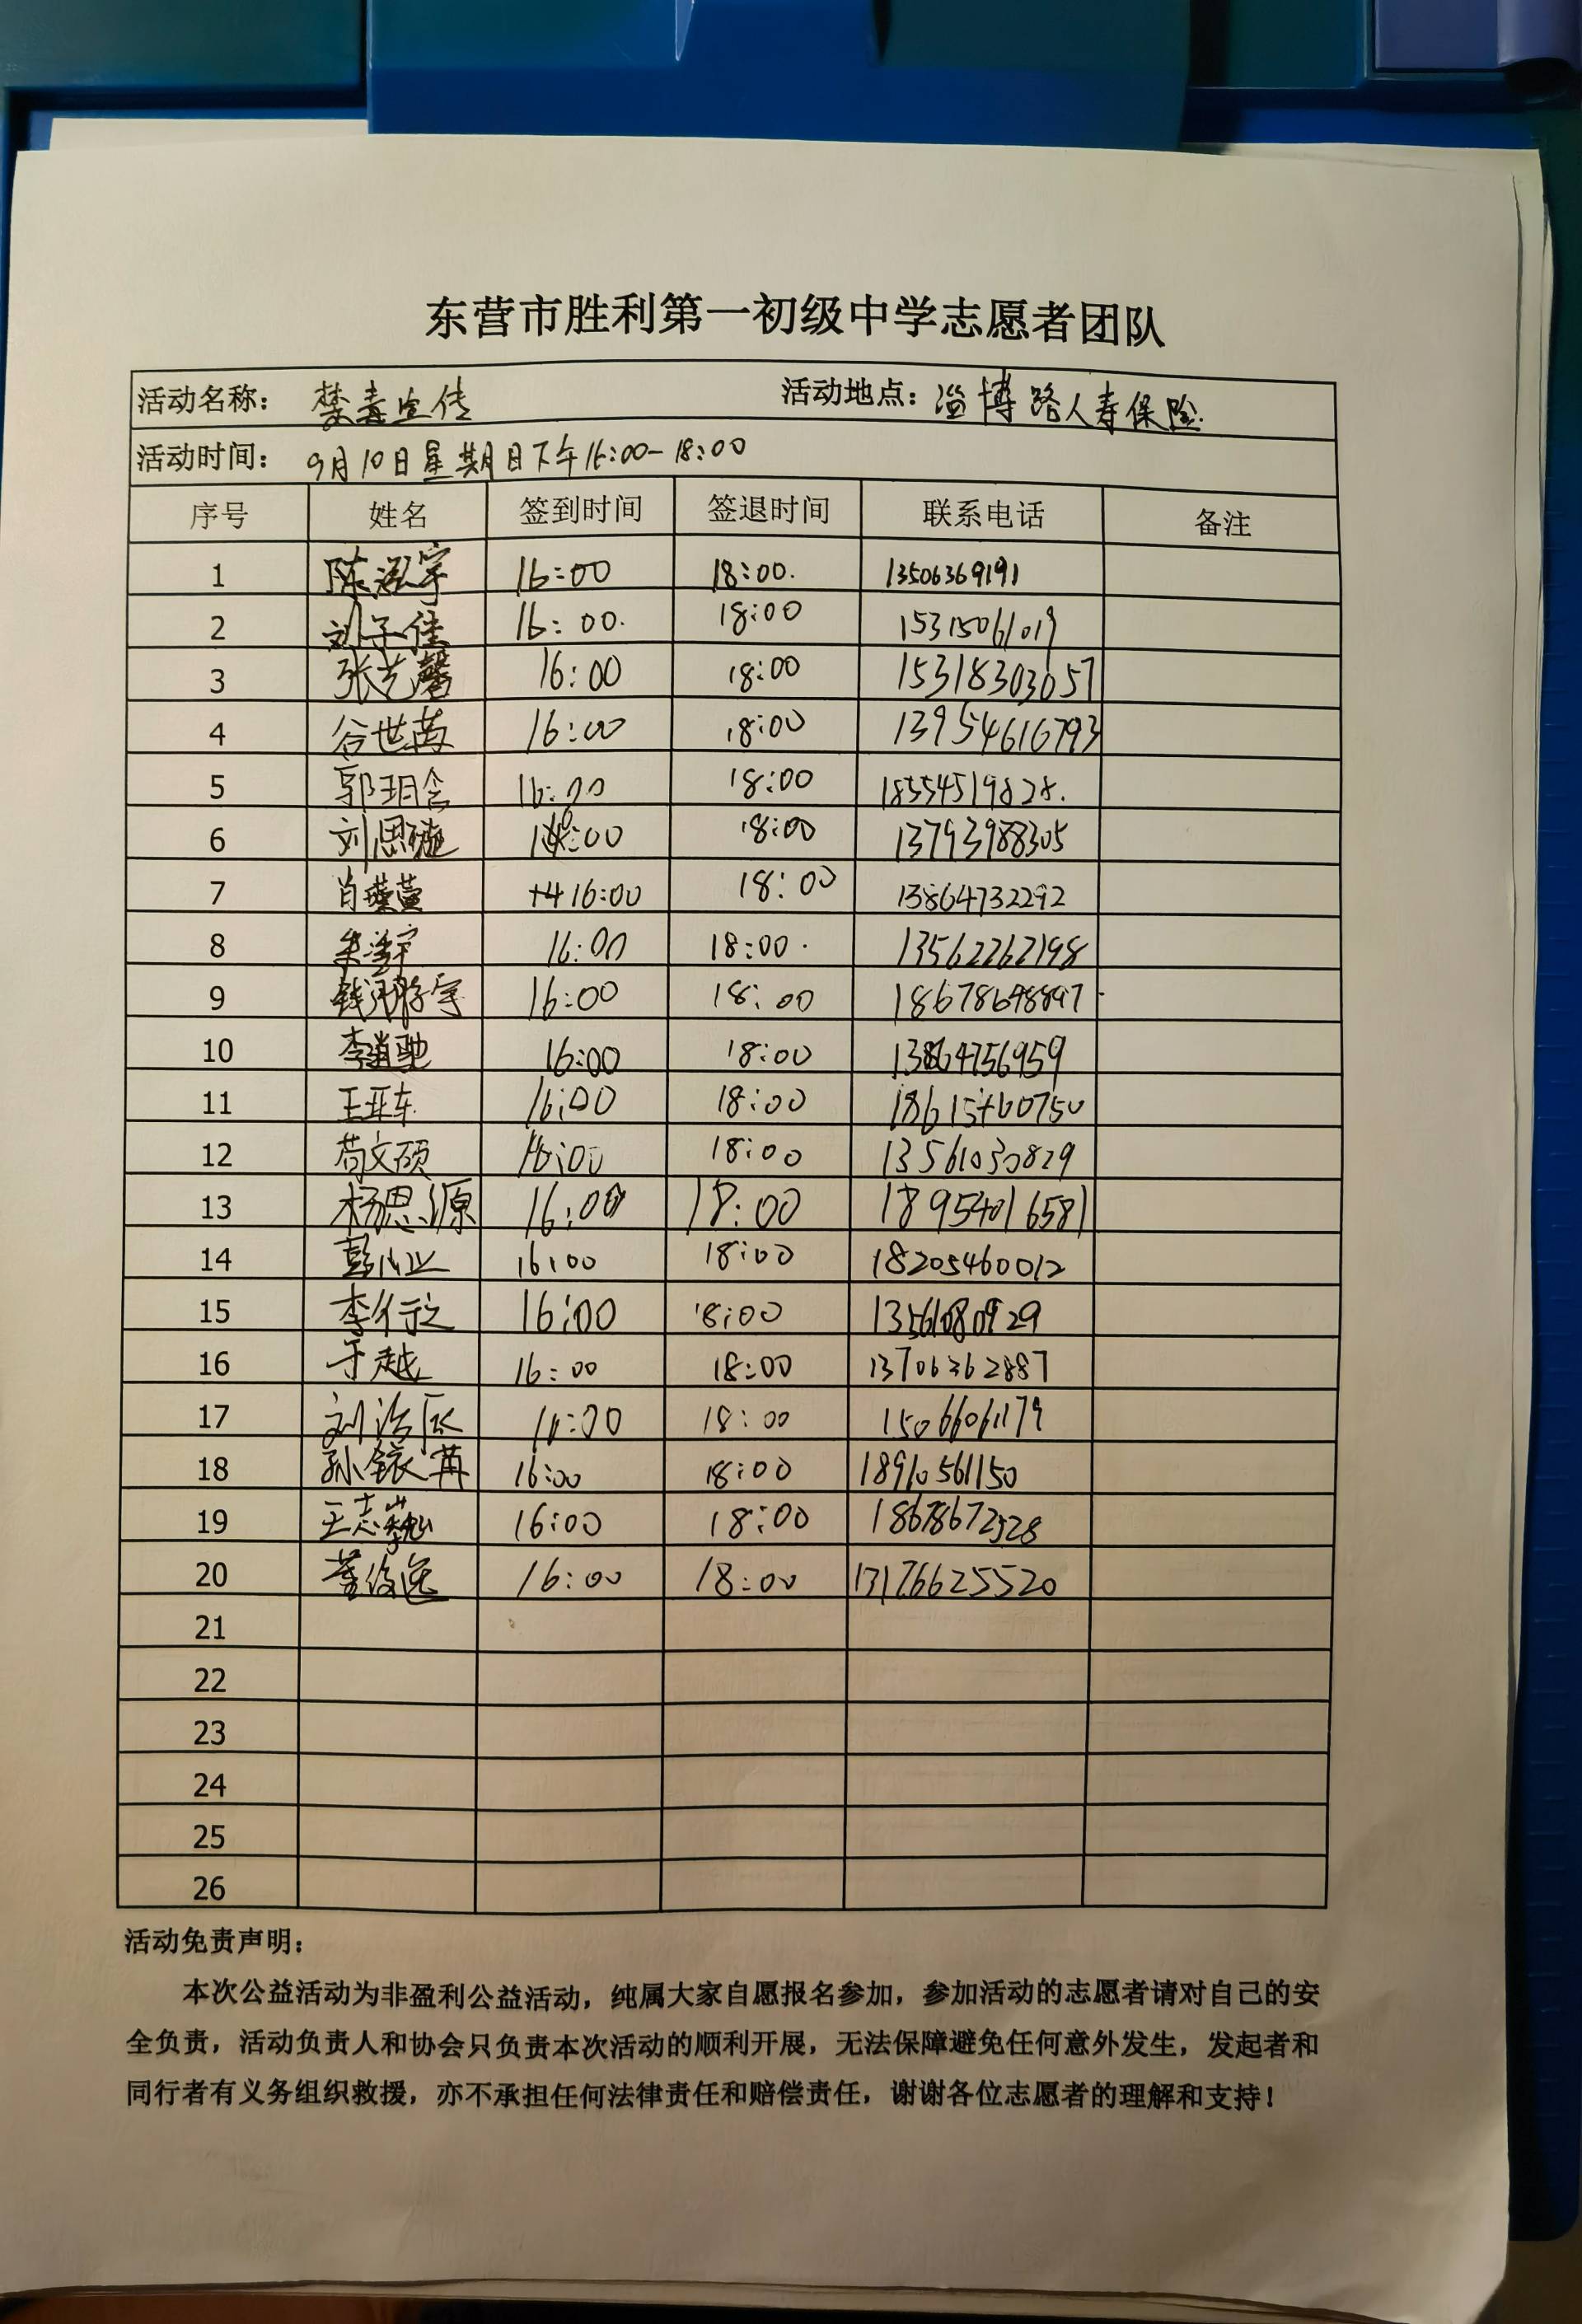 东营市胜利第一初级中学志愿者团队
活动名称： 禁毒宣传 活动地点：淄博路人寿保险.
活动时间： 9月10日星期日下午16:00-18:00
序号 姓名 签到时间 签退时间 联系电话 备注
1 陈泓宇 16:00 18:00. 13506369191
2 刘子佳 16:00. 18:00 15315061019
3 张艺馨 16:00 18:00 15318303057
4 谷世茜 16:00 18:00 13954616793
5 郭玥含 16:00 18:00 18554519828.
6 刘思璇 16:00 18:00 13793988305
7 肖 16:00 18:00 13864732292
8 宇 16:00 18:00. 13562262198
9 钱 宇 16:00 18:00 18678698897
10 李逍驰 16:00 18:00 13864756959
11 王亚东 16:00 18:00
12 苟文硕 16:00 18:00 13561030829
13 杨思源 16:00 18:00 18954016581
14 彭 16:00 18:00 18205460012
15 李行之 16:00 18:00 13561080929
16 于越 16:00 18:00 13706362887
17 刘浩辰 16:00 18:00 15066061179
18 孙铱苒 16:00 18:00 18910561150
19 王志巍 16:00 18:00 18678672528
20 董俊逸 16:00 18:00 13176625520
21
22
23
24
25
26
活动免责声明：
本次公益活动为非盈利公益活动，纯属大家自愿报名参加，参加活动的志愿者请对自己的安
全负责，活动负责人和协会只负责本次活动的顺利开展，无法保障避免任何意外发生，发起者和
同行者有义务组织救援，亦不承担任何法律责任和赔偿责任，谢谢各位志愿者的理解和支持！